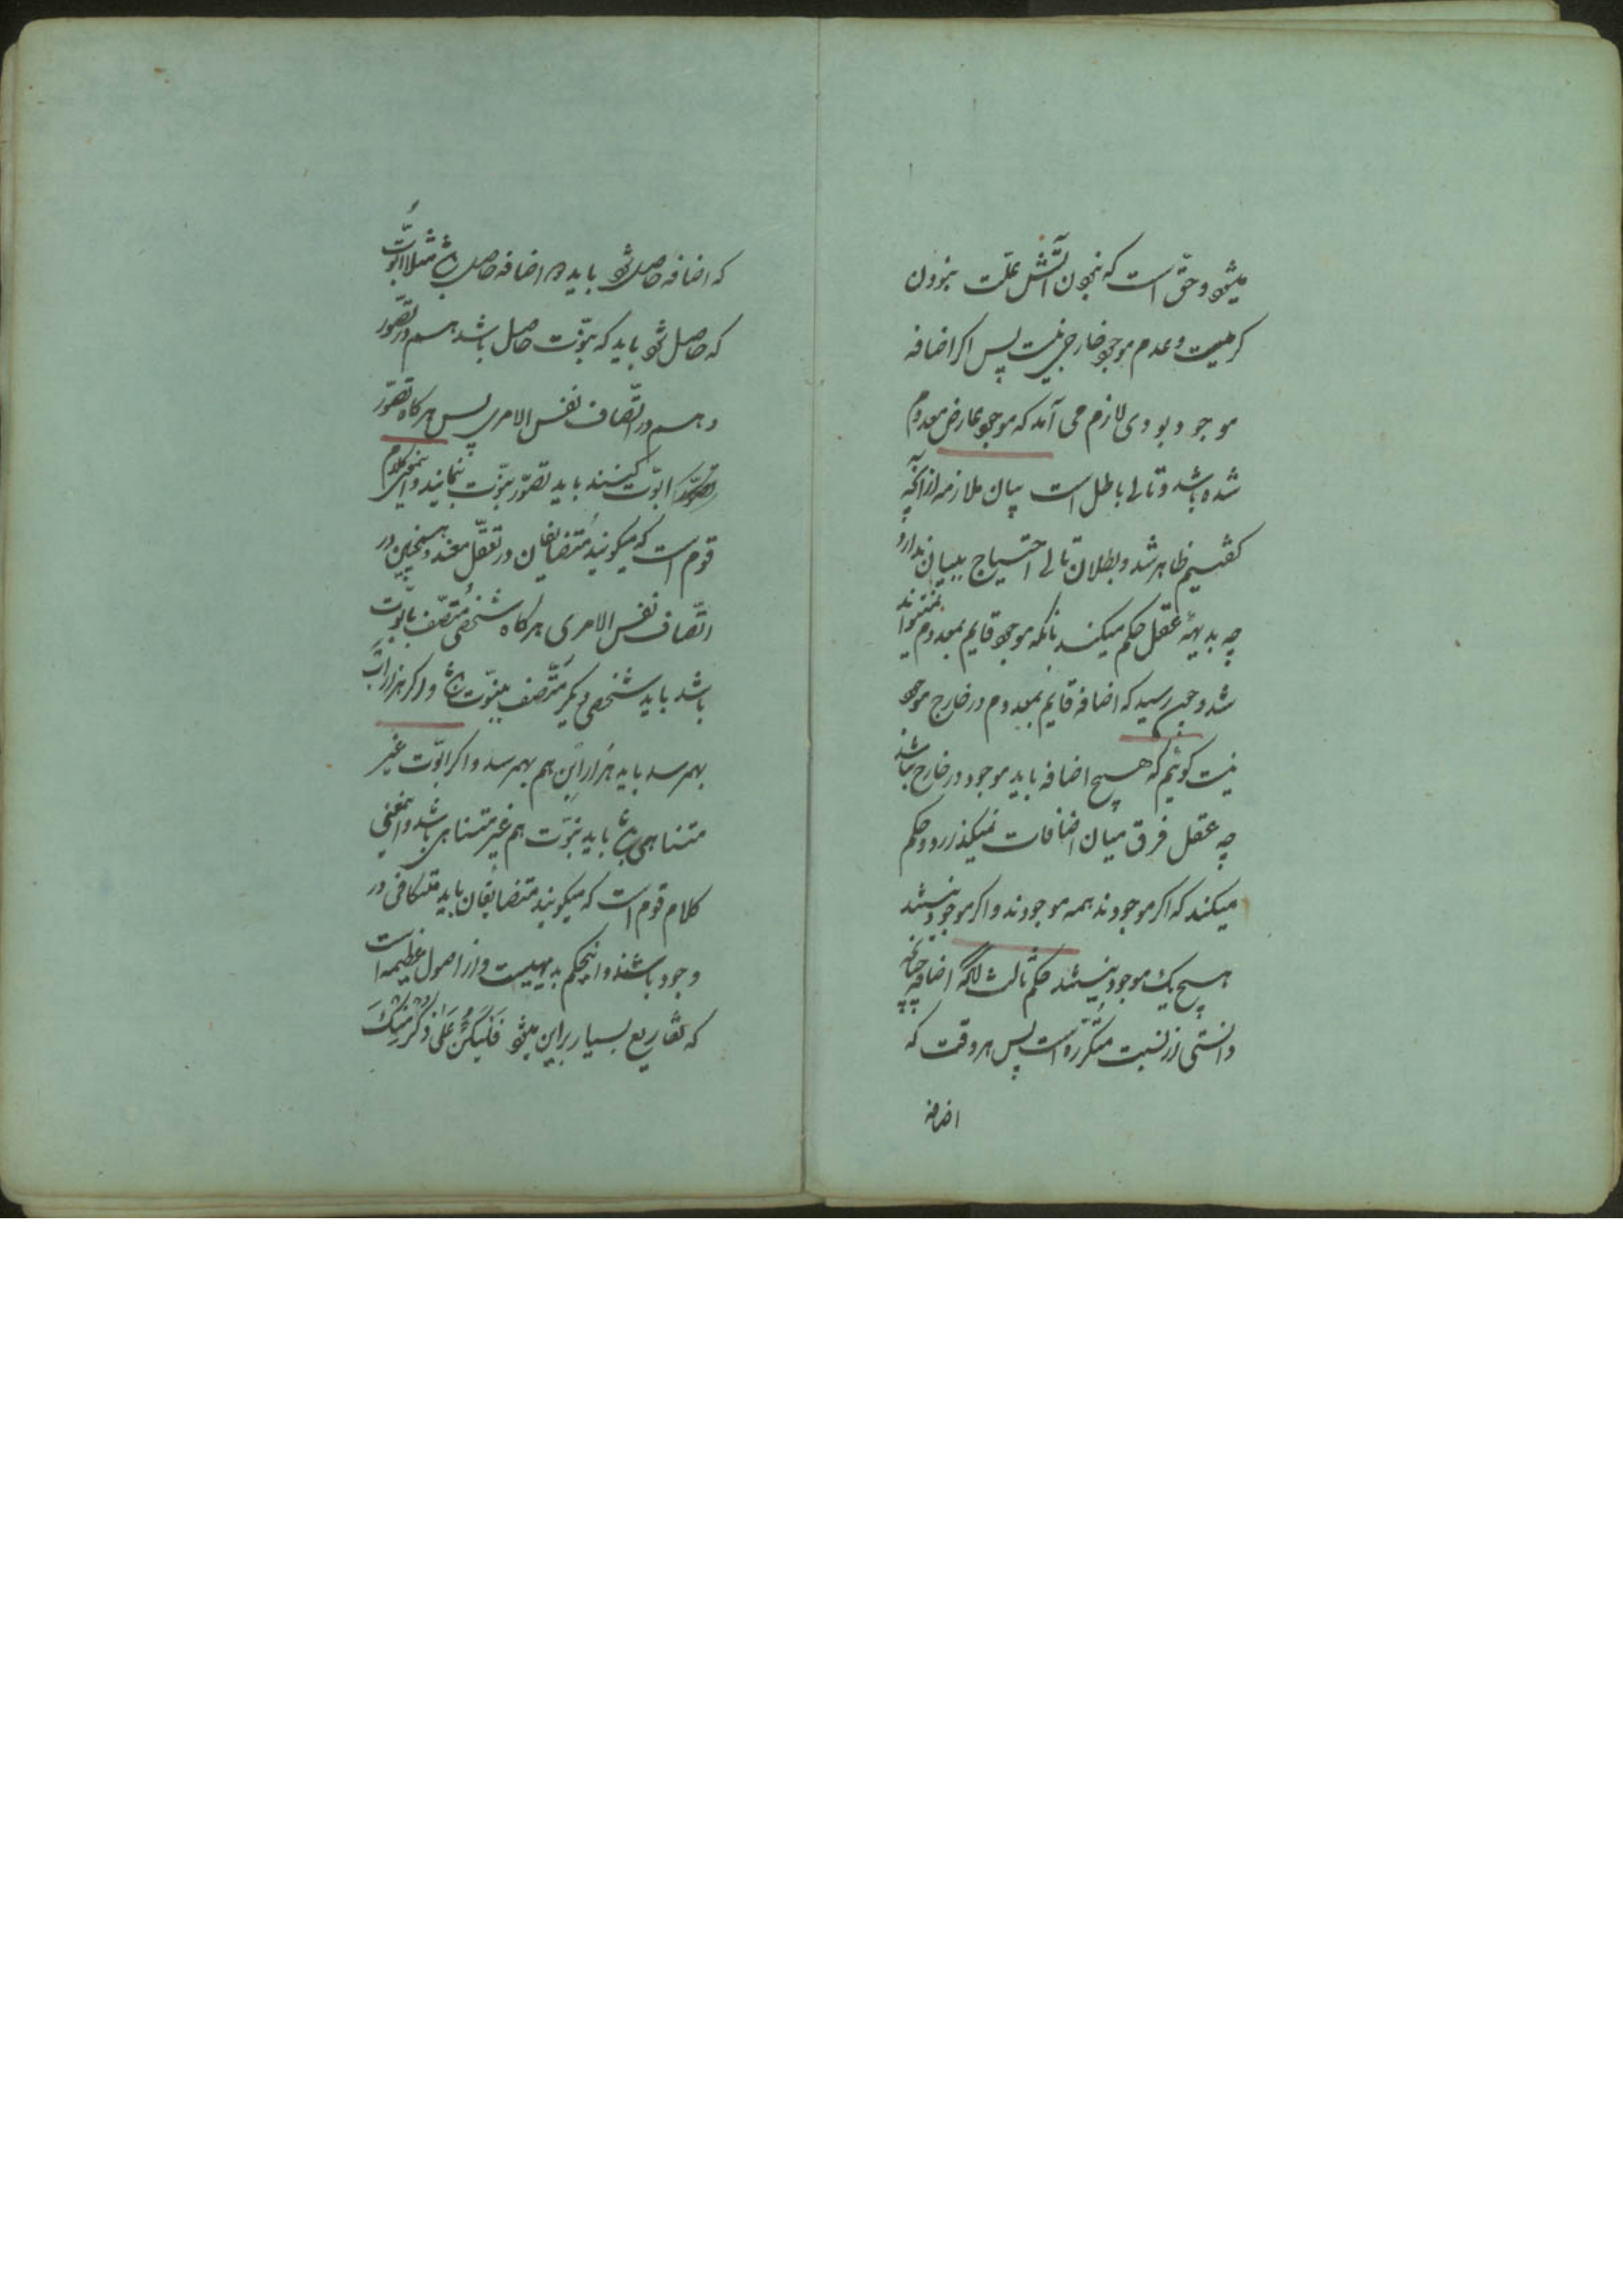 میشود و حق است که نبودن آتش علت نبودن
گرمیست و عدم موجود خارجی نیست پس اگر اضافه
موجود بودی لازم می آمد که موجود عارض معدوم
شده باشد و تالی باطل است بیان ملازمه از آنچه
گفتیم ظاهر شد و بطلان تالی احتیاج ببیان ندارد
چه بدیهه عقل حکم میکند بانکه موجود قایم بمعدوم نمیتواند
شد و چون رسید که اضافه قایم بمعدوم در خارج موجود
نیست گوئیم که هیچ اضافه باید موجود در خارج نباشد
چه عقل فرق میان اضافات نمیگذارد و حکم
میکند که اگر موجودند همه موجودند و اگر موجود نیستند
هیچ یک موجود نیستند حکم ثالث آنکه اضافه چنانچه
دانستی از نسبت متکرره است پس هر وقت که
اضافه
که اضافه حاصل شود باید دو اضافه حاصل باشد مثلا ابوّت
که حاصل شود باید که بنوّت حاصل باشد هم در تصوّر
و هم در اتّصاف نفس الامری پس هرگاه تصوّر
ابوّت کنند باید تصوّر بنوّت نمایند و اینمعنی کلام
قوم است که میگویند متضایفان در تعقّل معند و همچنین در
اتّصاف نفس الامری هرگاه شخصی متّصف بابوّت
باشد باید شخصی دیگر متّصف ببنوّت باشد و اگر هزار اب
بهمرسد باید هزار ابن هم بهمرسد و اگر ابوّت غیر
متناهی باشد باید بنوّت هم غیر متناهی باشد و اینمعنی
کلام قوم است که میگویند متضایفان باید متکافی در
وجود باشند و اینحکم بدیهیست و از اصول عظیمه است
که تفاریع بسیار بر این میشود فَلْیَکُنْ عَلیٰ ذُکْرٍ مِنْکَ